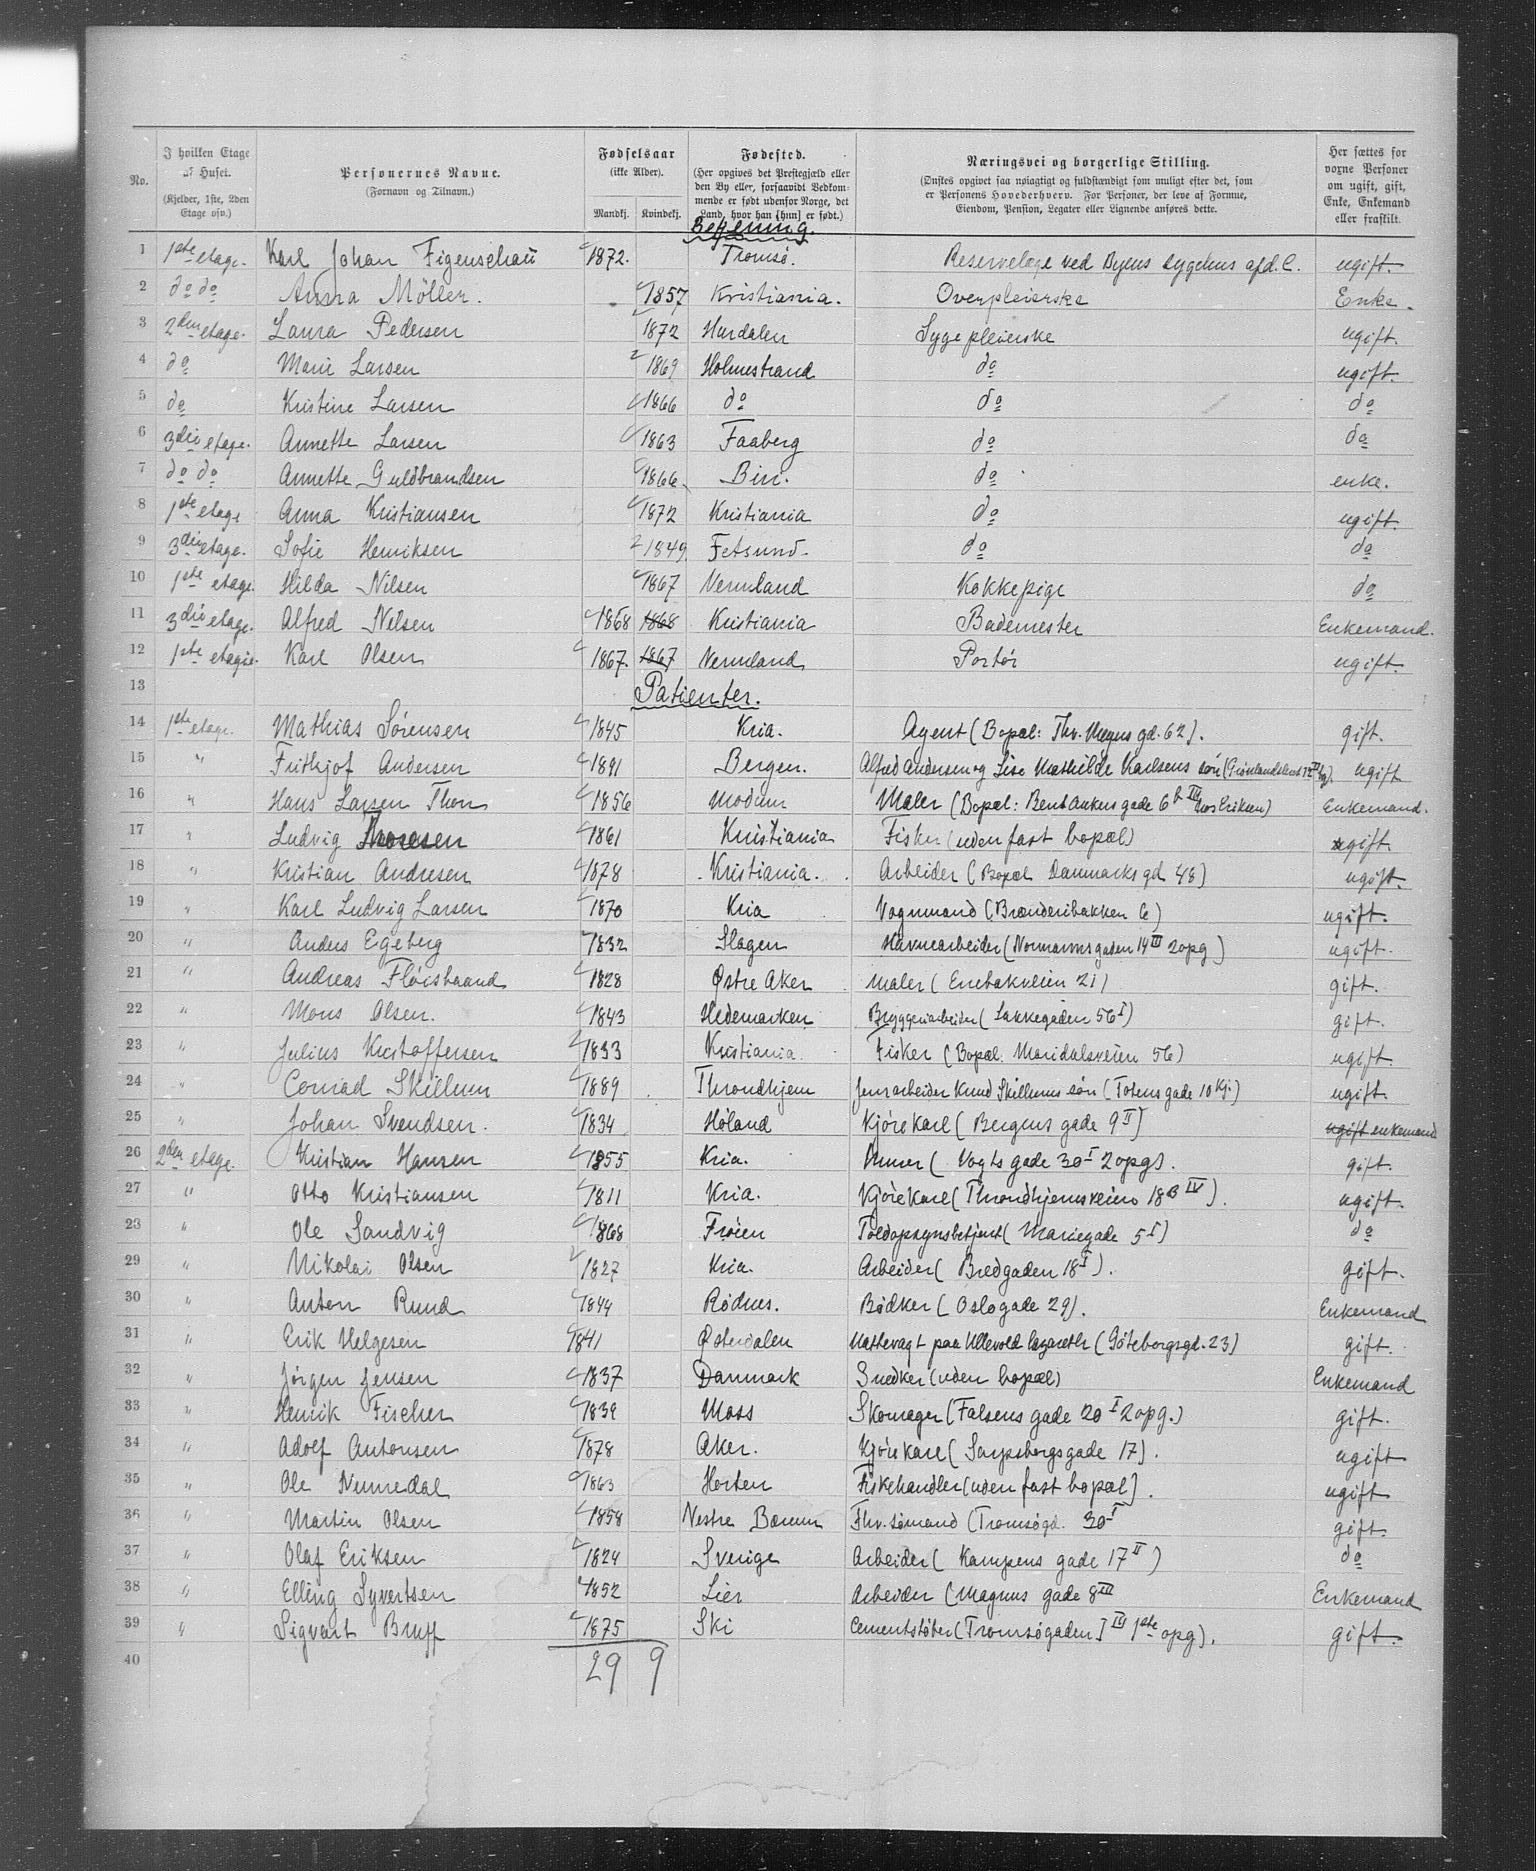 No. | I hvilken Etage af Huset. (Kjelder, 1ste, 2den Etage osv.) | Personernes Navne. (Fornavn og Tilnavn.) | Fødselsaar (ikke Alder). Mandkj. Kvindekj. | Fødested. (Her opgives det Prestegjæld eller den By eller, forsaavidt Vedkommende er født udenfor Norge, det Land, hvor han [hun] er født.) | Næringsvei og borgerlige Stilling. (Ønskes opgivet saa nøiagtigt og fuldstændigt som muligt efter det, som er Personens Hovederhverv. For Personer, der leve af Formue, Eiendom, Pension, Legater eller Lignende anføres dette. | Her sættes for voxne Personer om ugift, gift, Enke, Enkemand eller fraskilt.
Betjening.
1 1ste etage. Karl Johan Figenschau 1872. Tromsø. Reservelæge ved Byens sygehus afd. C. ugift.
2 do do Anna Möller. 1857 Kristiania. Overpleierske Enke.
3 2den etage. Laura Pedersen 1872 Hurdalen Sygepleierske ugift.
4 do Marie Larsen 1869 Holmestrand do ugift.
5 do Kristine Larsen 1866 do do do
6 3die etage. Annette Larsen 1863 Faaberg do do
7 do do Annette Guldbrandsen 1866 Biri. do enke.
8 1ste etage Anna Kristiansen 1872 Kristiania do ugift.
9 3die etage. Sofie Henriksen 1849 Fetsund. do do
10 1ste etage. Hilda Nilsen 1867 Vermland Kokkepige do
11 3die etage. Alfred Nelsen 1868 1868 Kristiania Bademester Enkemand.
12 1ste etage. Karl Olsen 1867. 1867 Vermland Portør ugift.
13 Patienter.
14 1ste etage. Mathias Sørensen 1845 Kria. Agent (Bopæl: Thv. Meyers gd. 62). gift.
15 " Frithjof Andersen 1891 Bergen. Alfred Andersen og Lise Mathilde Karlsens søn ugift
16 " Hans Larsen Thon 1856 Modum Maler (Bopæl: Bent Ankers gade 6b III hos Eriksen) Enkemand.
17 " Ludvig Thoresen 1861 Kristiania Fisker (uden fast bopæl) gift.
18 " Kristian Andresen 1878 Kristiania. Arbeider (Bopæl Danmarks gd 48) ugift.
19 " Karl Ludvig Larsen 1870 Kria Vognmand (Brænderibakken 6) ugift.
20 " Anders Egeberg 1832 Slagen Havnearbeider (Normannsgaden 14 III 2 opg) ugift.
21 " Andreas Fløistraand 1828 Østre Aker Maler (Enebakveien 21) gift.
22 " Mons Olsen. 1843 Hedemarken Bryggeriarbeider (Lakkegaden 56 I) gift.
23 " Julius Kristoffersen 1833 Kristiania. Fisker (Bopæl. Maridalsveien 56) ugift.
24 " Conrad Skillum 1889 Throndhjem Jernarbeider Knud Skillums søn (Totens gade 10 Kj.) ugift.
25 " Johan Svendsen. 1834 Høland Kjørekarl (Bergens gade 9 II) ugift enkemand
26 2den etage. Kristian Hansen 1855 Kria. Murer (Vogts gade 30 I 2 opg). gift.
27 " Otto Kristiansen 1811 Kria. Kjørekarl (Throndhjemsveien 18 B IV). ugift.
28 " Ole Sandvig 1868 Frøien Toldopsynsbetjent (Mariegade 5 I) do
29 " Nikolai Olsen 1827 Kria. Arbeider (Bredgaden 18 I). gift.
30 " Anton Ruud 1844 Rødnes. Bødker (Oslogade 29). Enkemand
31 " Erik Helgesen 1841 Østerdalen Nattevagt paa Ullevold lazareth (Göteborgsgd. 23) gift.
32 " Jørgen Jensen 1837 Danmark Snedker (uden bopæl) Enkemand
33 " Henrik Fischer 1839 Moss Skomager (Falsens gade 20 I 2 opg.) gift.
34 " Adolf Antonsen 1878 Aker. Kjørekarl (Sarpsborgsgade 17). ugift
35 " Ole Numedal 1863 Horten Fiskehandler (uden fast bopæl). ugift
36 " Martin Olsen 1858 Vestre Bærum Fhv. sømand (Tromsøgd. 30 I gift.
37 " Olaf Eriksen 1824 Sverige Arbeider (Kampens gade 17 II) do
38 " Elling Syvertsen 1852 Lier Arbeider (Magnus gade 8 III Enkemand
39 " Sigvart Bruff 1875 Ski Cementstøber (Tromsøgaden 1ste opg). gift.
40 29 9